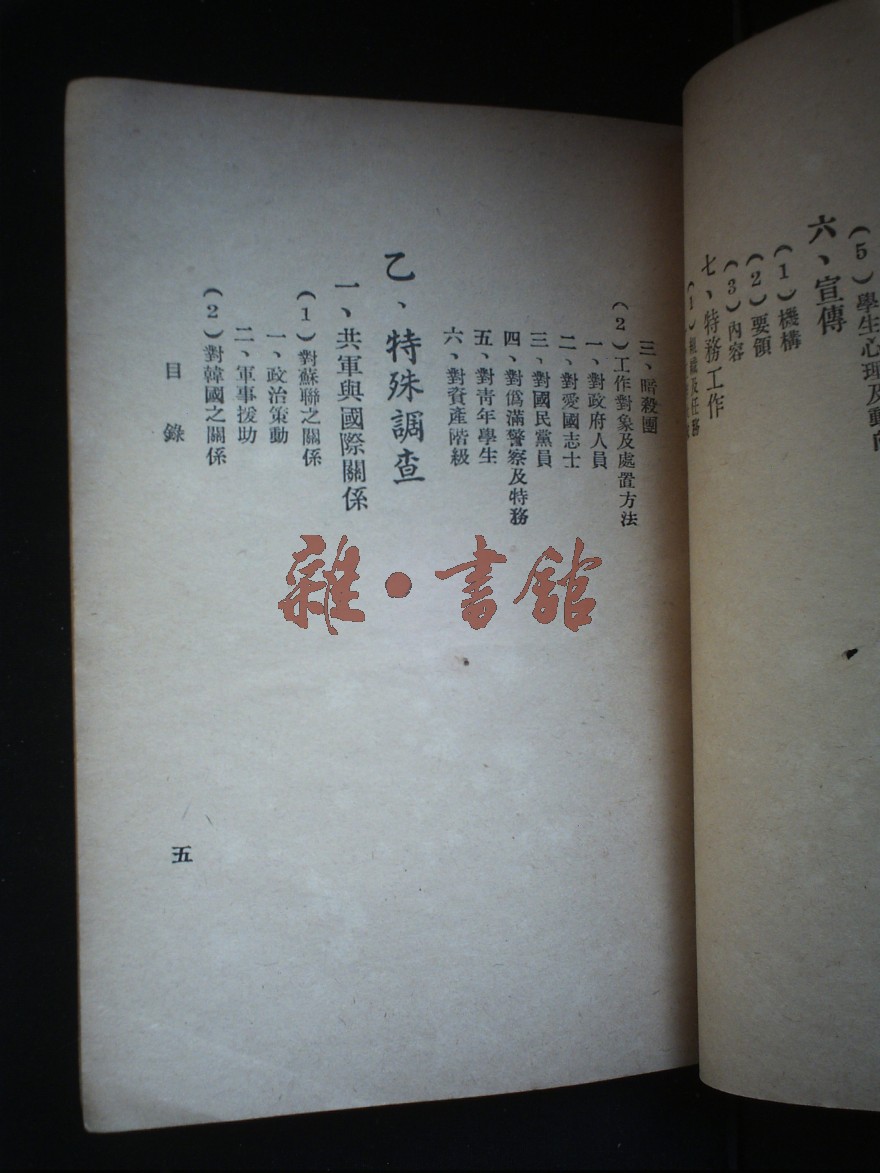 (5)學生心理及動向
六、宣傳
(1)機構
(2)要領
(3)內容
七、特務工作
(1)組織及任務
三、暗殺團
(2)工作對象及處置方法
一、對政府人員
二、對愛國志士
三、對國民黨員
四、對僞滿警察及特務
五、對靑年學生
六、對資產階級
乙、特殊調查
一、共軍與國際關係
(1)對蘇聯之關係
一、政治策動
二、軍事援助
(2)對韓國之關係
目錄
五
雜·書館